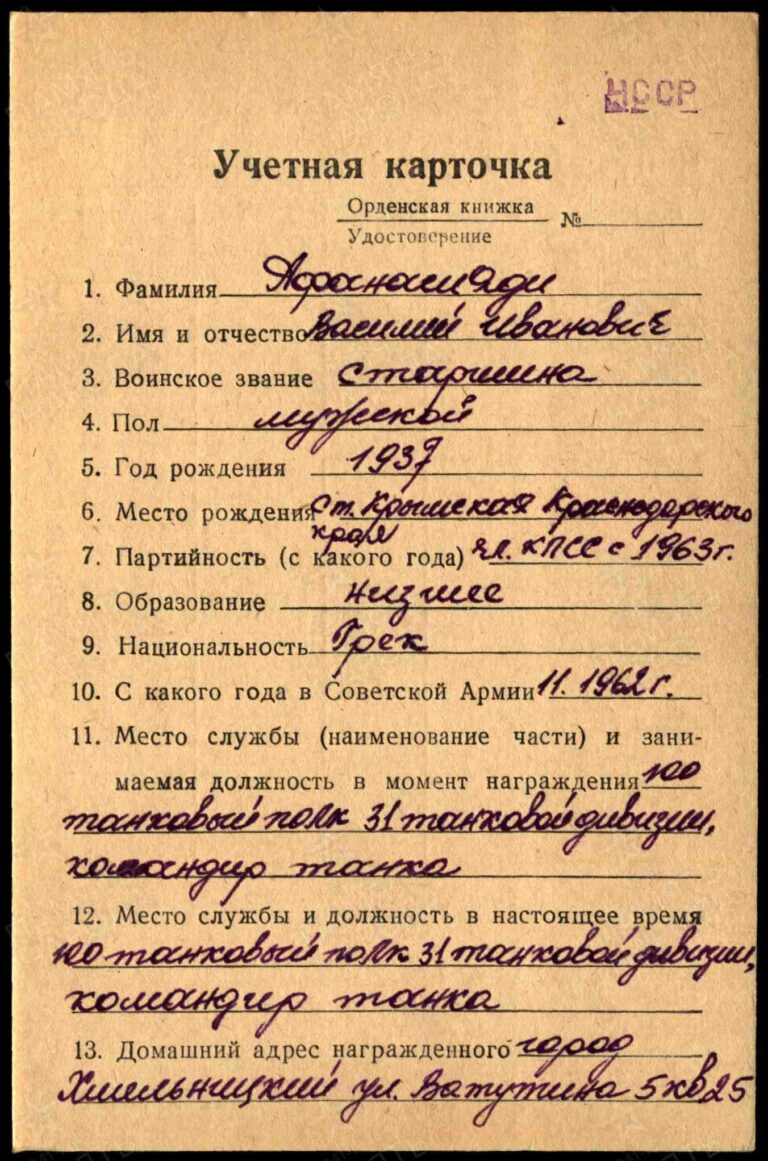 ЧССР
Учетная карточка
Орденская книжка №
Удостоверение
1. Фамилия Афанасияди
2. Имя и отчество Василий Иванович
3. Воинское звание Старшина
4. Пол мужской
5. Год рождения 1937
6. Место рождения ст. Крымская Краснодарского
края
7. Партийность (с какого года) чл. КПСС с 1963г.
8. Образование низшее
9. Национальность Грек
10. С какого года в Советской Армии 11. 1962г.
11. Место службы (наименование части) и зани-
маемая должность в момент награждения 100
танковый полк 31 танковой дивизии,
командир танка
12. Место службы и должность в настоящее время
100 танковый полк 31 танковой дивизии,
командир танка
13. Домашний адрес награжденного город
Хмельницкий ул. Ватутина 5 кв 25